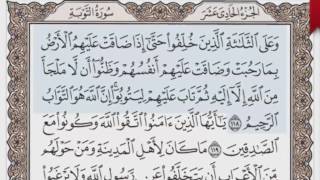 الجزء الحادي عشر
سورة التوبة
وَعَلَى ٱلثَّلَـٰثَةِ ٱلَّذِينَ خُلِّفُوا۟ حَتَّىٰٓ إِذَا ضَاقَتْ عَلَيْهِمُ ٱلْأَرْضُ
بِمَا رَحُبَتْ وَضَاقَتْ عَلَيْهِمْ أَنفُسُهُمْ وَظَنُّوٓا۟ أَن لَّا مَلْجَأَ
مِنَ ٱللَّهِ إِلَّآ إِلَيْهِ ثُمَّ تَابَ عَلَيْهِمْ لِيَتُوبُوٓا۟ إِنَّ ٱللَّهَ هُوَ ٱلتَّوَّابُ
ٱلرَّحِيمُ ١١٨ يَـٰٓأَيُّهَا ٱلَّذِينَ ءَامَنُوا۟ ٱتَّقُوا۟ ٱللَّهَ وَكُونُوا۟ مَعَ
ٱلصَّـٰدِقِينَ ١١٩ مَا كَانَ لِأَهْلِ ٱلْمَدِينَةِ وَمَنْ حَوْلَهُم
مِّنَ ٱلْأَعْرَابِ أَن يَتَخَلَّفُوا۟ عَن رَّسُولِ ٱللَّهِ وَلَا يَرْغَبُوا۟